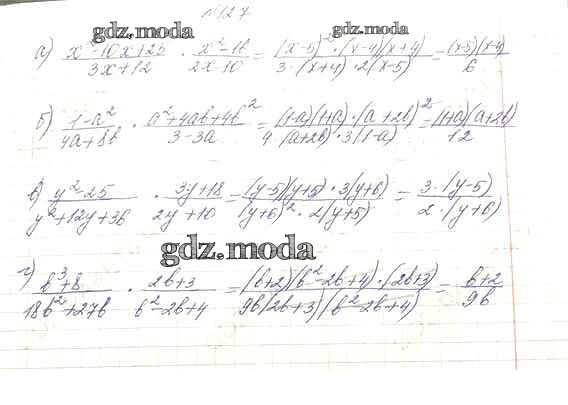 №127
gdz.moda gdz.moda
а) x²-10x+25 / 3x+12 · x²-16 / 2x-10 = (x-5)²·(x-4)(x+4) / 3·(x+4)·2(x-5) = (x-5)(x-4) / 6
б) 1-a² / 4a+8b · a²+4ab+4b² / 3-3a = (1-a)(1+a)·(a+2b)² / 4·(a+2b)·3(1-a) = (1+a)(a+2b) / 12
в) y²-25 / y²+12y+36 · 3y+18 / 2y+10 = (y-5)(y+5)·3(y+6) / (y+6)²·2(y+5) = 3·(y-5) / 2·(y+6)
gdz.moda
г) b³+8 / 18b²+27b · 2b+3 / b²-2b+4 = (b+2)(b²-2b+4)·(2b+3) / 9b(2b+3)(b²-2b+4) = b+2 / 9b